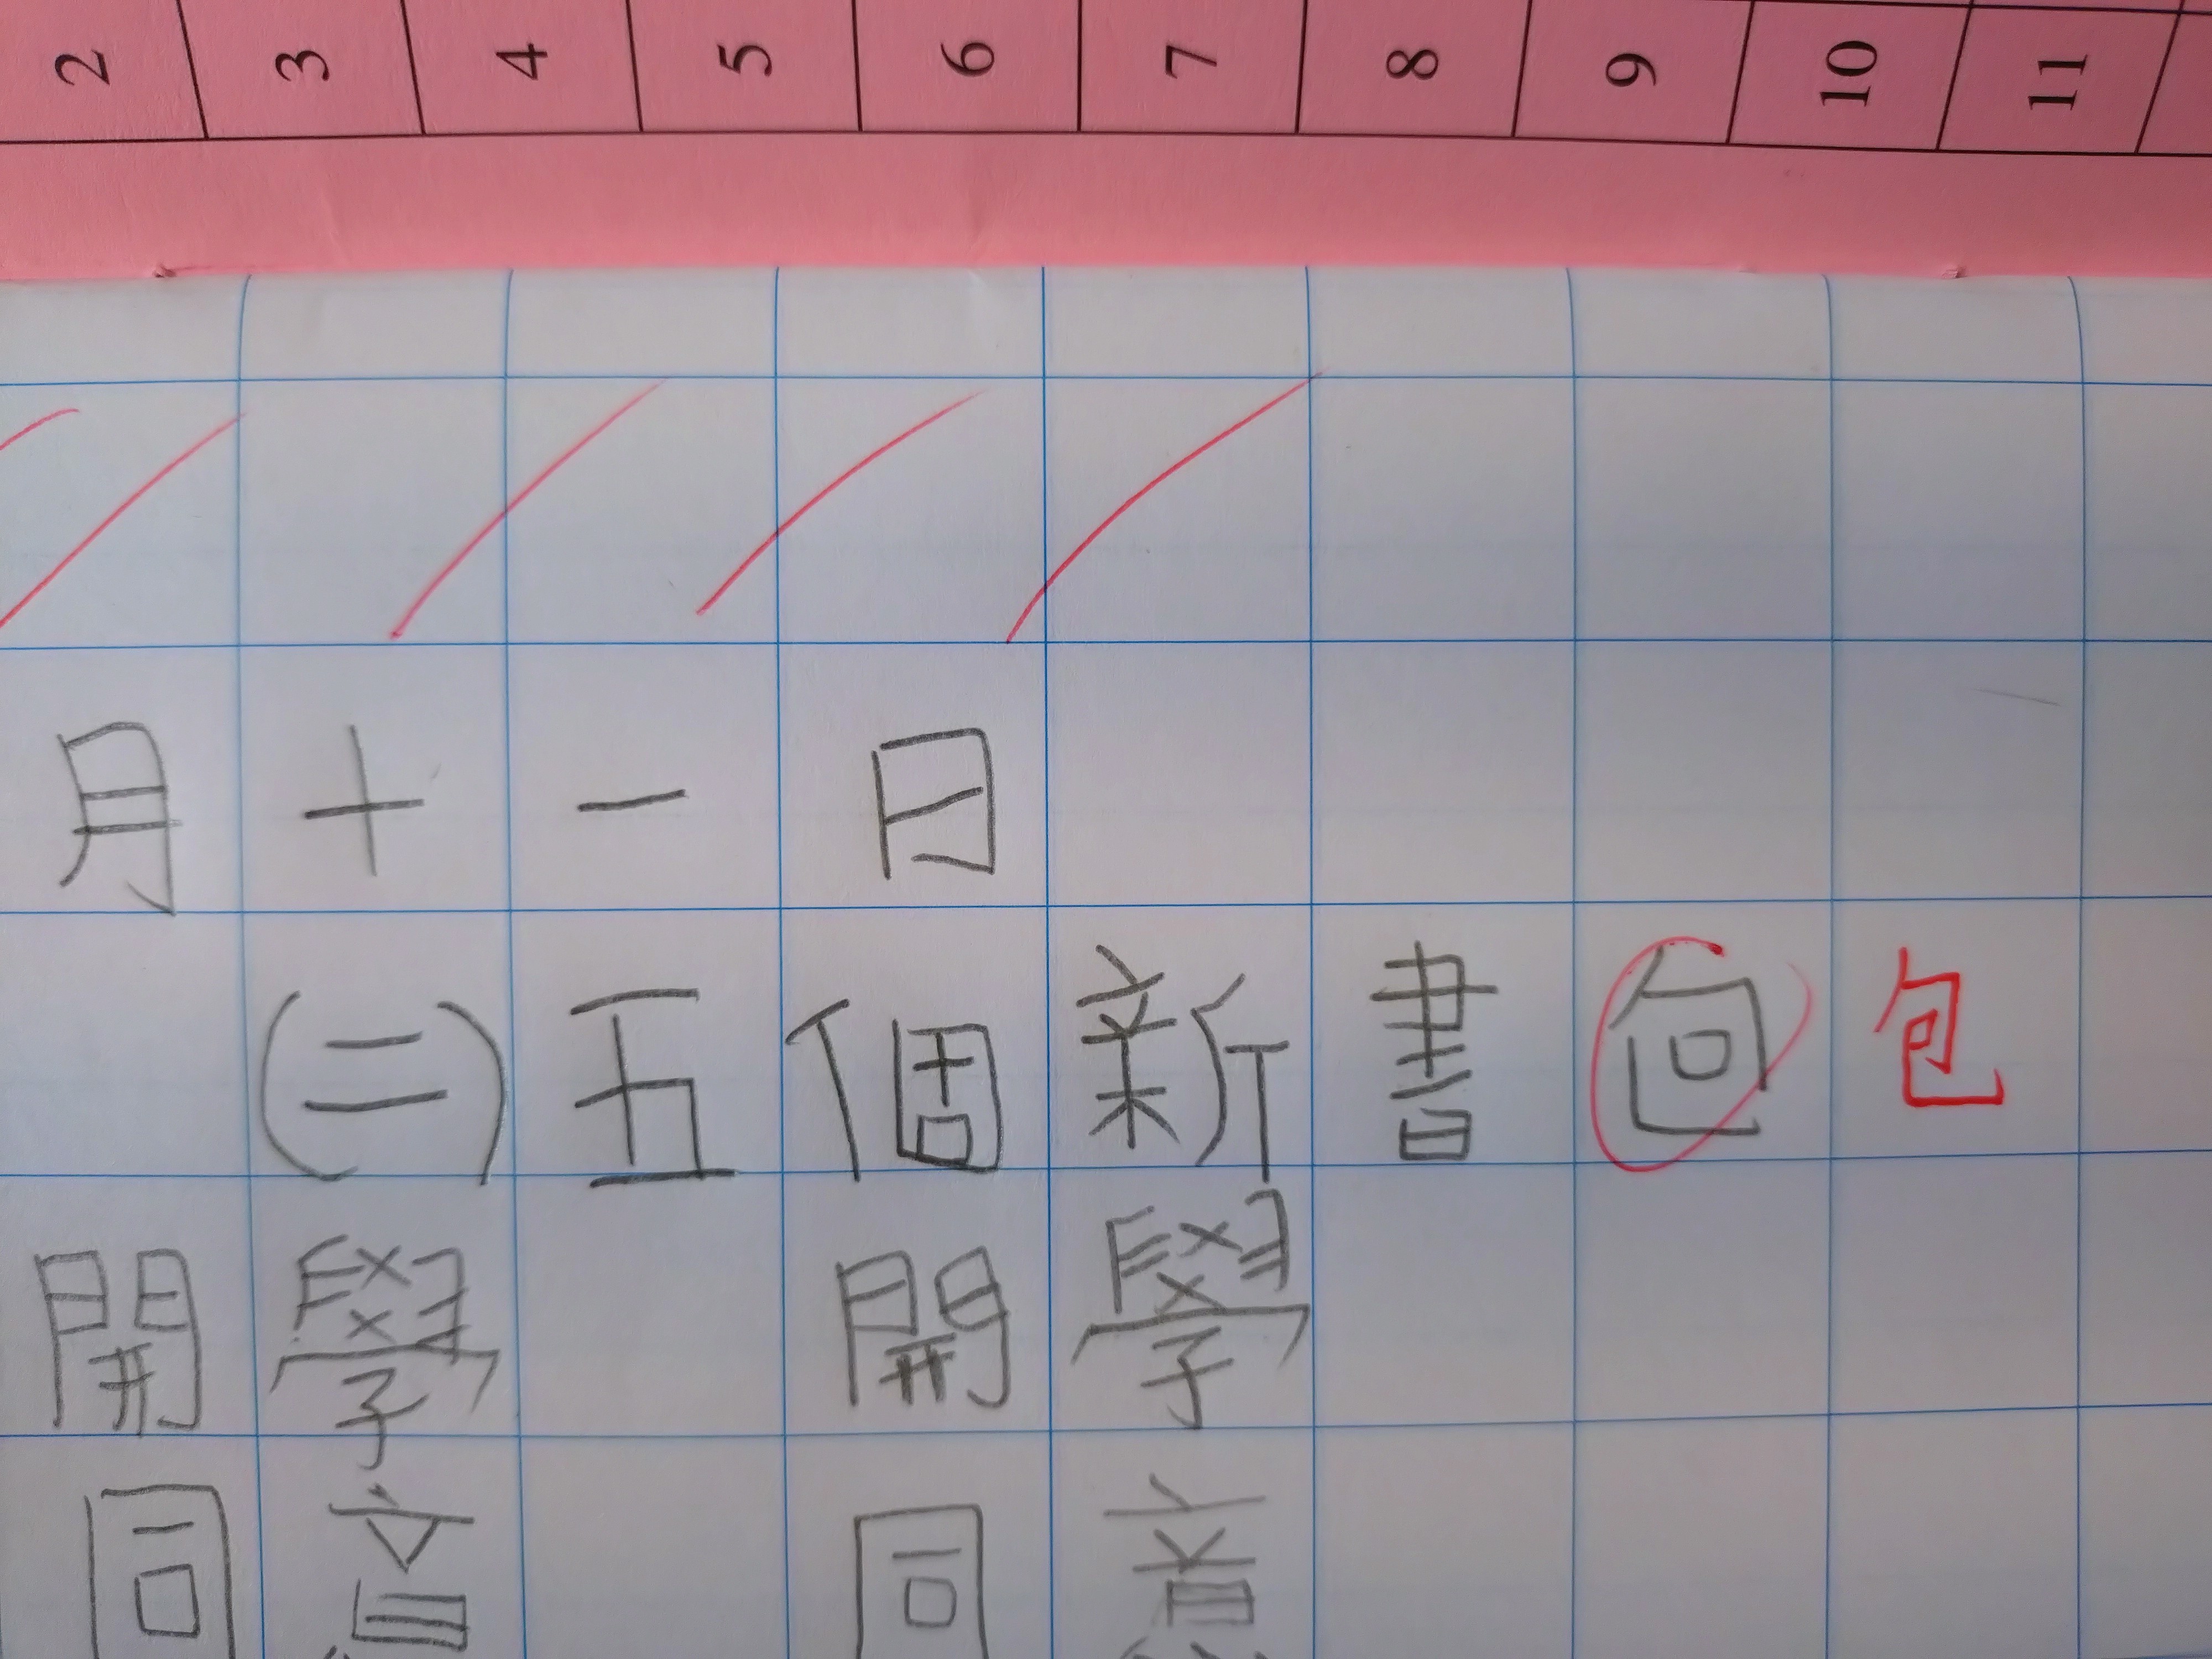 2 3 4 5 6 7 8 9 10 11
月十一日
(二)五個新書包 包
開學 開學
同意 同意